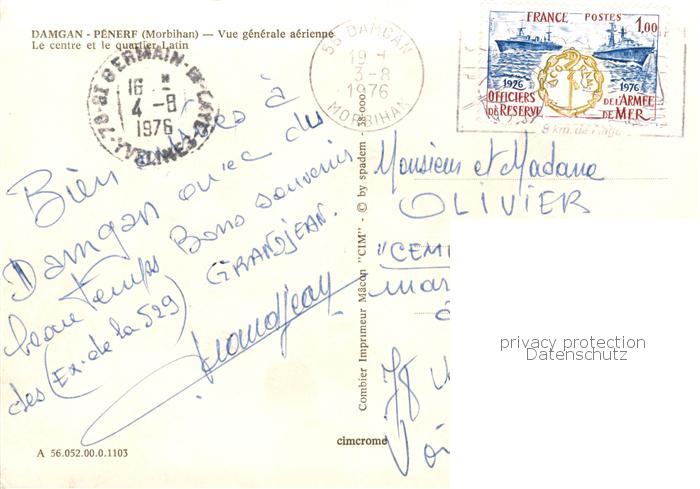 DAMGAN - PÉNERF (Morbihan) — Vue générale aérienne
Le centre et le quartier Latin
78 ST GERMAIN-EN-LAYE YVELINES
16 H
4 - 8
1976
56 DAMGAN
19 H
3 - 8
1976
MORBIHAN
FRANCE POSTES 1,00
1926 1976
ACORAM
OFFICIERS DE RESERVE
DE L'ARMEE DE MER
Bien arrivés à
Damgan avec du
beau temps Bons souvenirs
des (Ex. de la 529) GRANDJEAN.
Grandjean
Combier Imprimeur Mâcon "CIM" - © by spadem - 38.000
Monsieur et Madame
OLIVIER
"CEM
mar
à
78
Voi
privacy protection
Datenschutz
cimcrome
A 56.052.00.0.1103